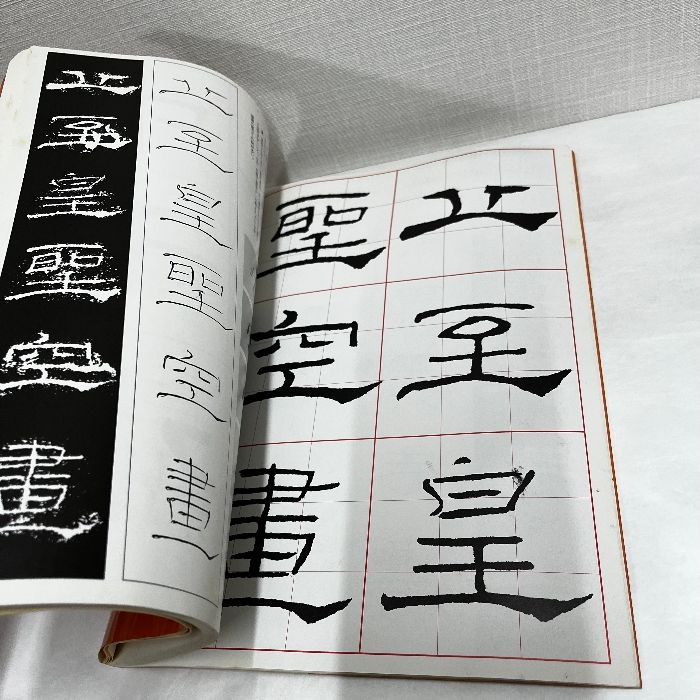 止至皇
聖空畫
止至皇聖空畫
止至皇聖空畫